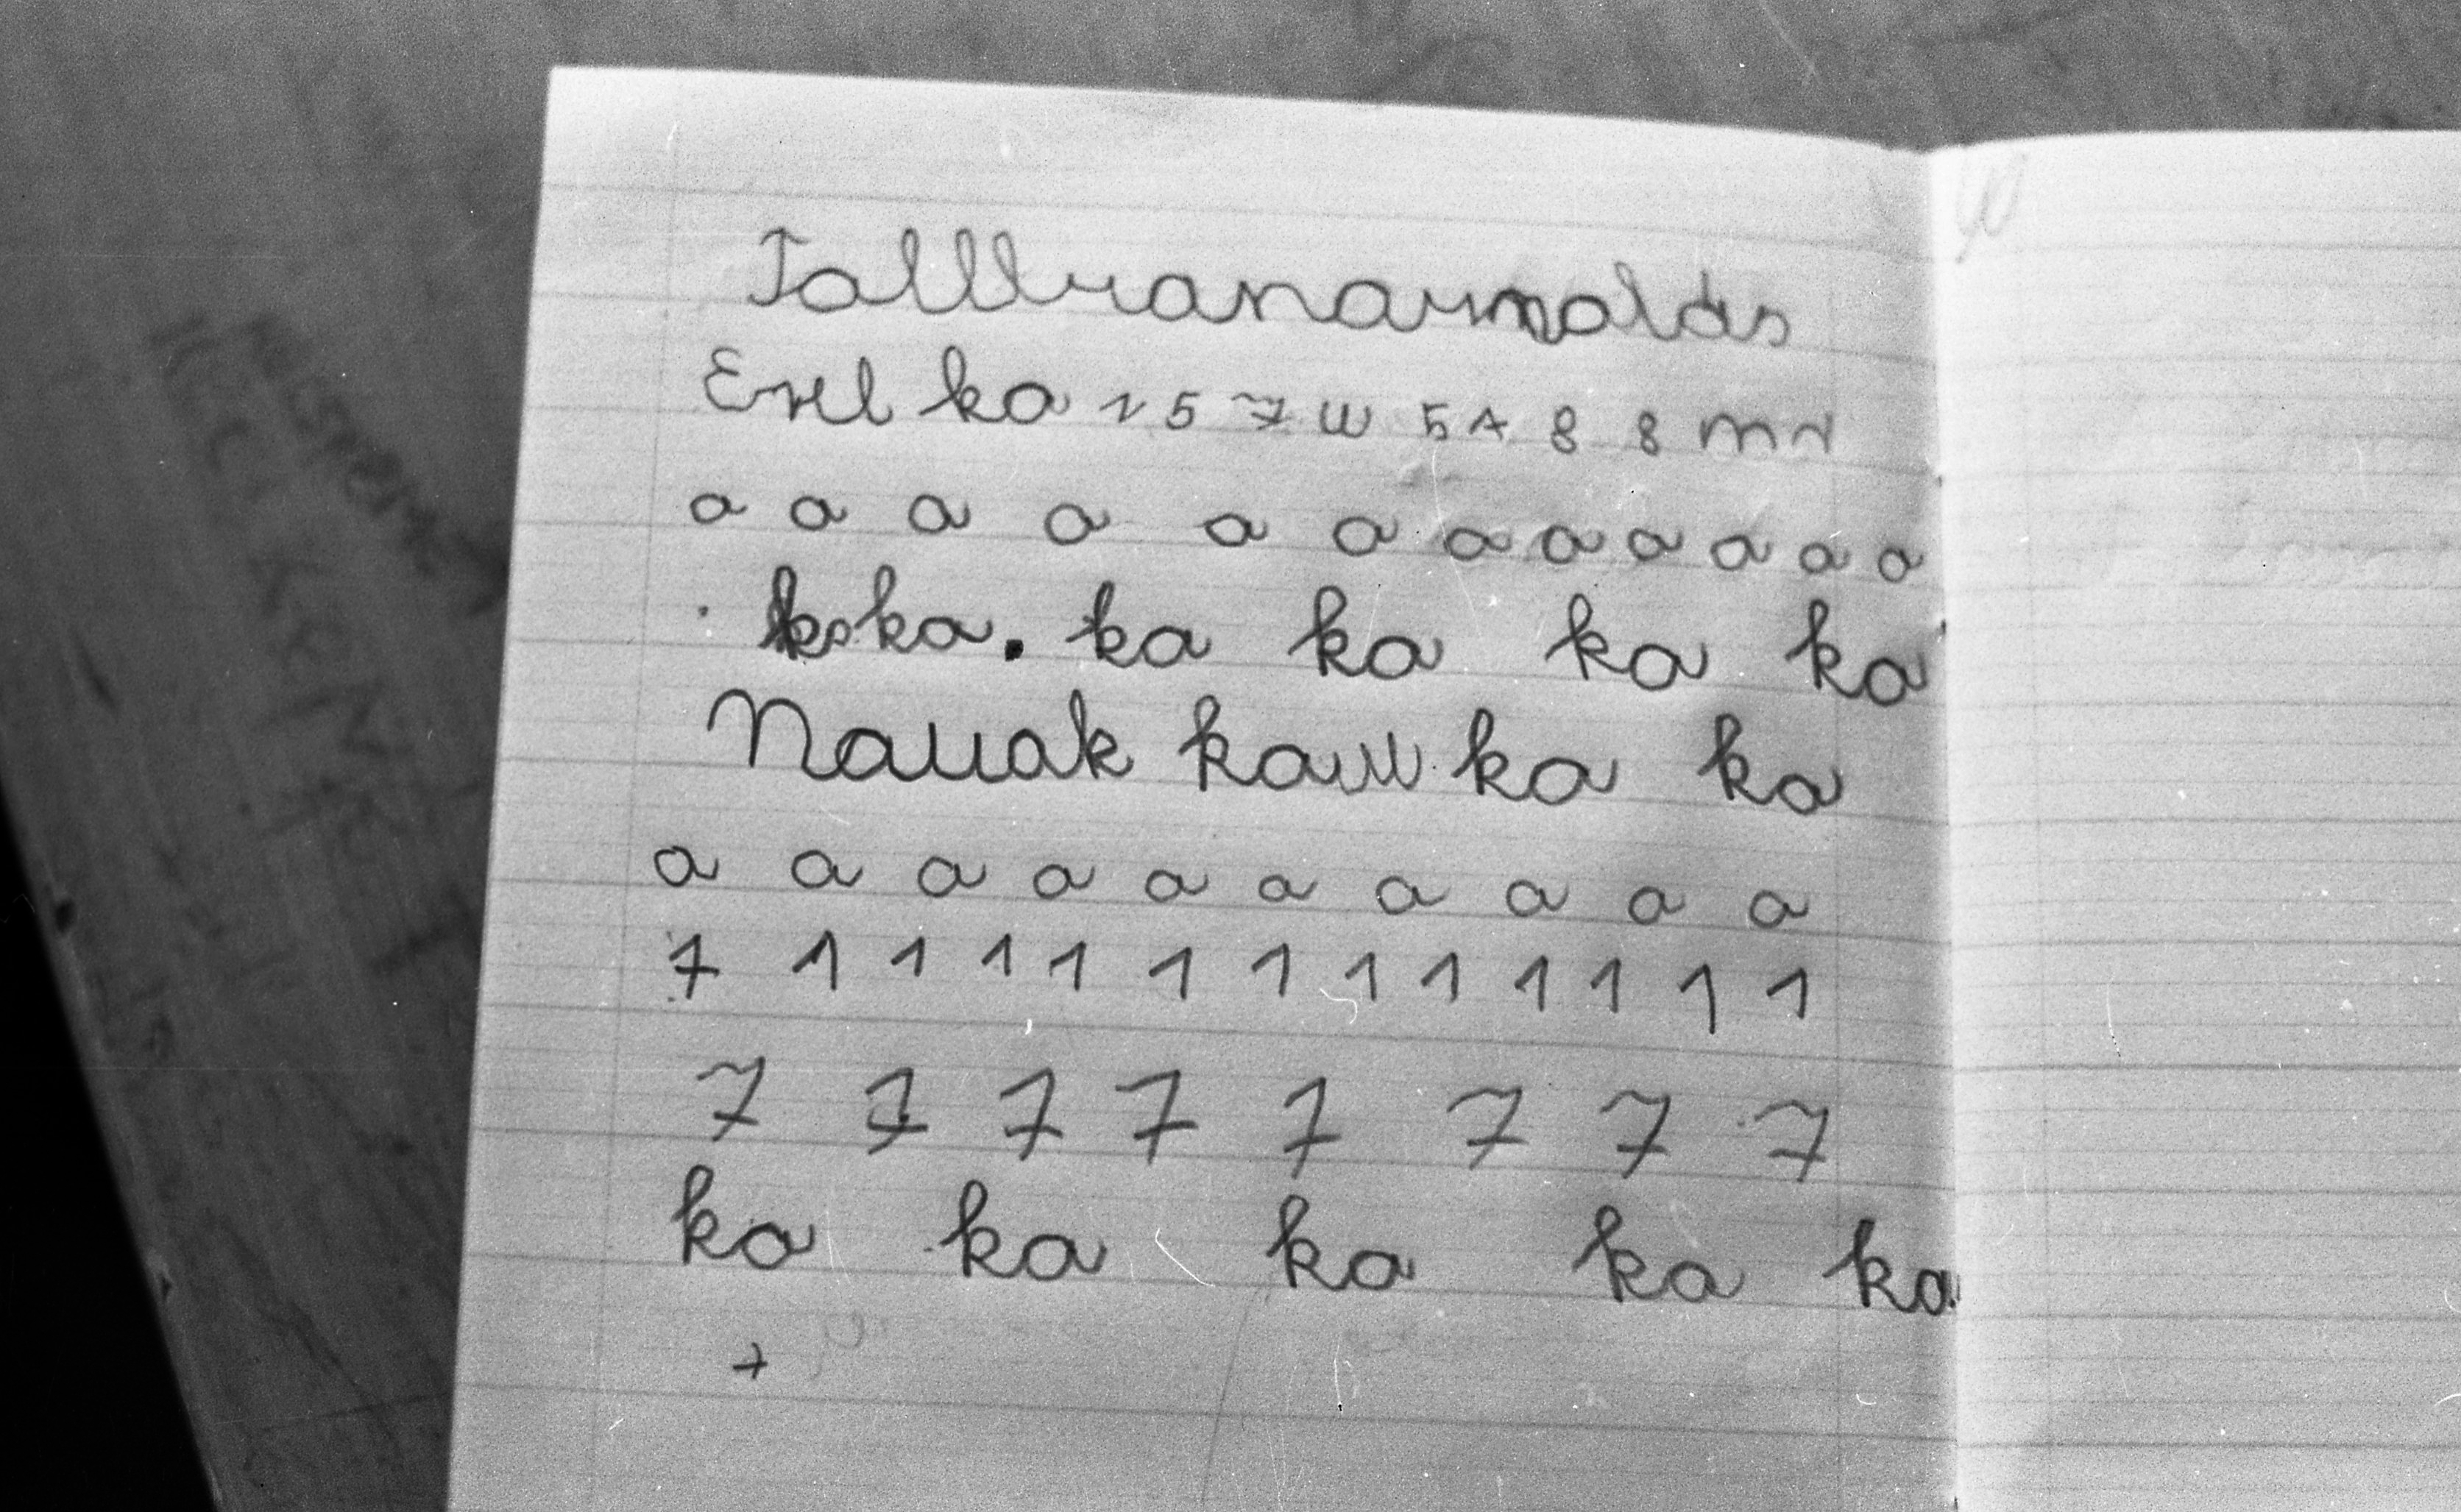 Tollbanarnolás
Erel ka 1 5 7 w 5 A 8 8 m
a a a a a a a a a a a a
ka ka. ka ka ka ka
Nauak kaw ka ka
a a a a a a a a a a
7 1 1 1 1 1 1 1 1 1 1 1 1
7 7 7 7 7 7 7 7
ka ka ka ka ka